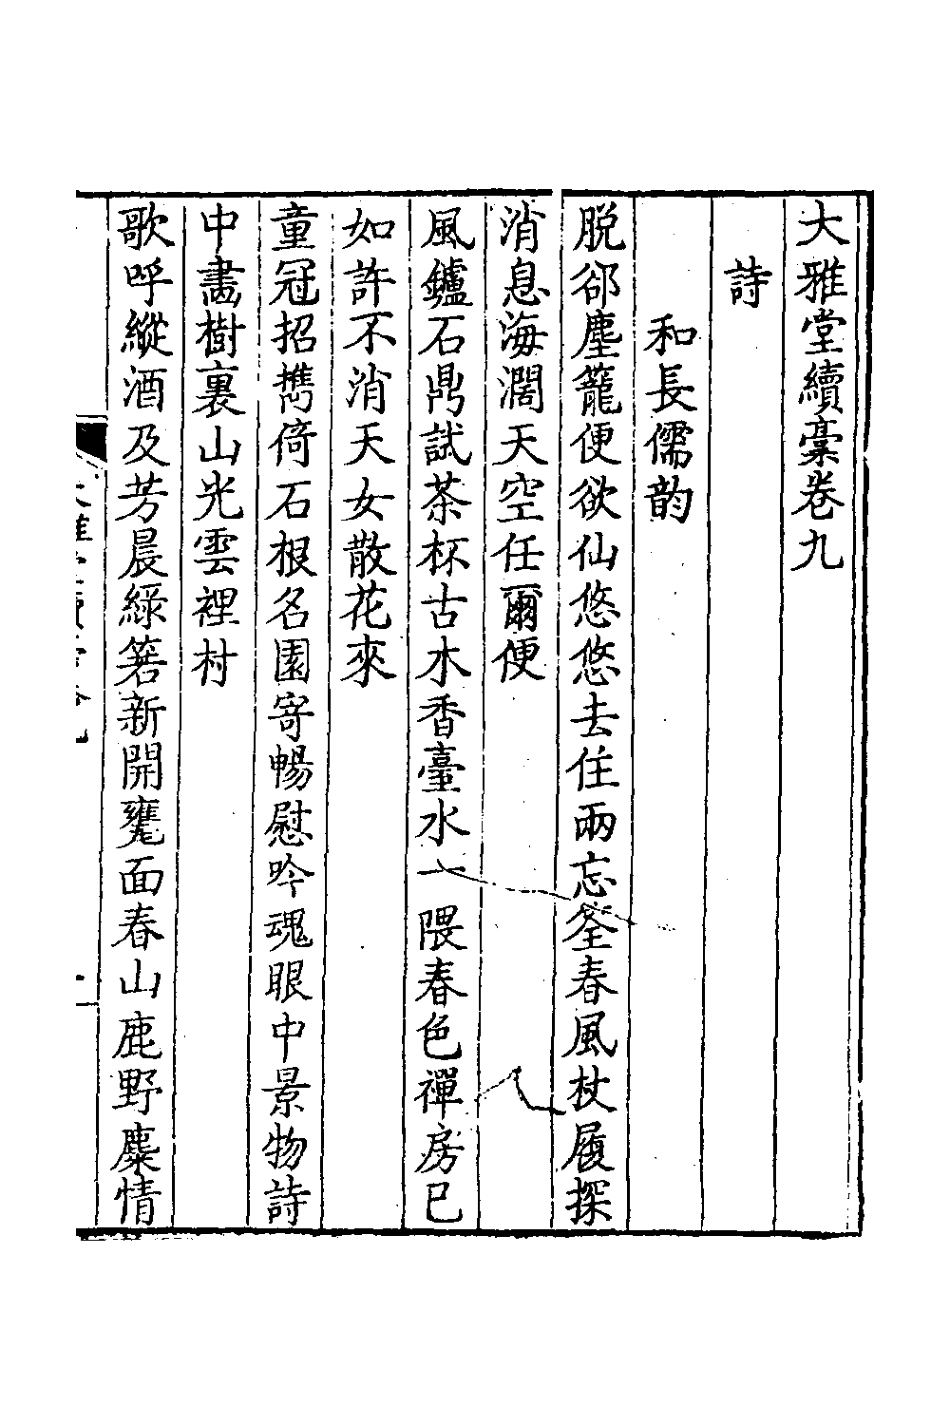 大雅堂續稾卷九
詩
和長儒韵
脫郤塵籠便欲仙悠悠去住兩忘筌春風杖履探
消息海濶天空任爾便
風鑪石鼎試茶杯古木香臺水一隈春色禪房已
如許不消天女散花來
童冠招擕倚石根名園寄暢慰吟魂眼中景物詩
中畵樹裏山光雲裡村
歌呼縱酒及芳晨綠箬新開甕面春山鹿野麋情